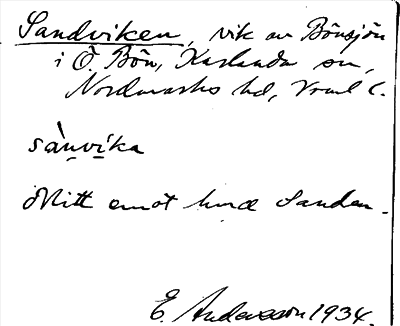 Sandviken, vik av Bönsjön
i Ö. Bön, Karlanda sn,
Nordmarks hd, Vrml l.
sànvíka
Mitt emot Sanden.
E. Andersson 1934.